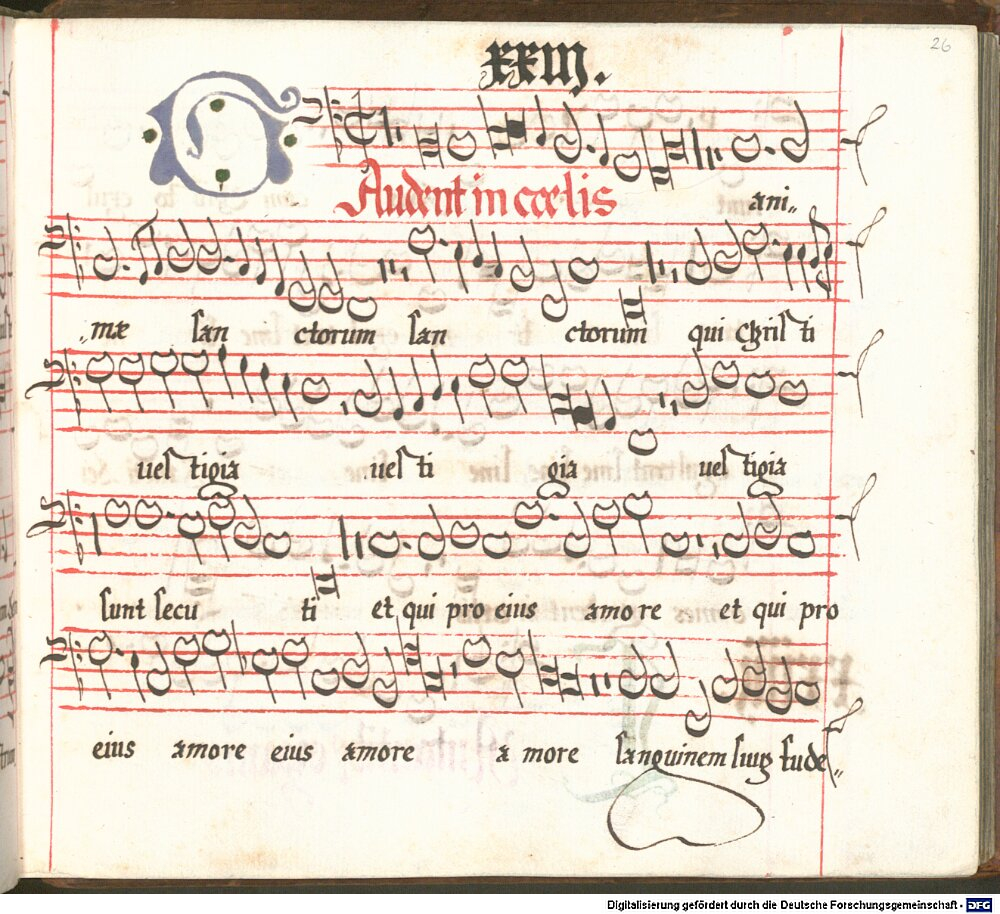 26
xxiij.
GAudent in cœlis ani„
„mæ san ctorum san ctorum qui christi
uestigia uesti gia uestigia
sunt secu ti et qui pro eius amore et qui pro
eius amore eius amore a more sanguinem suuꝫ fude„
Digitalisierung gefördert durch die Deutsche Forschungsgemeinschaft - DFG